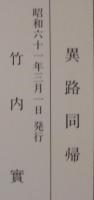 異路同帰
昭和六十一年三月一日 発行
竹内實